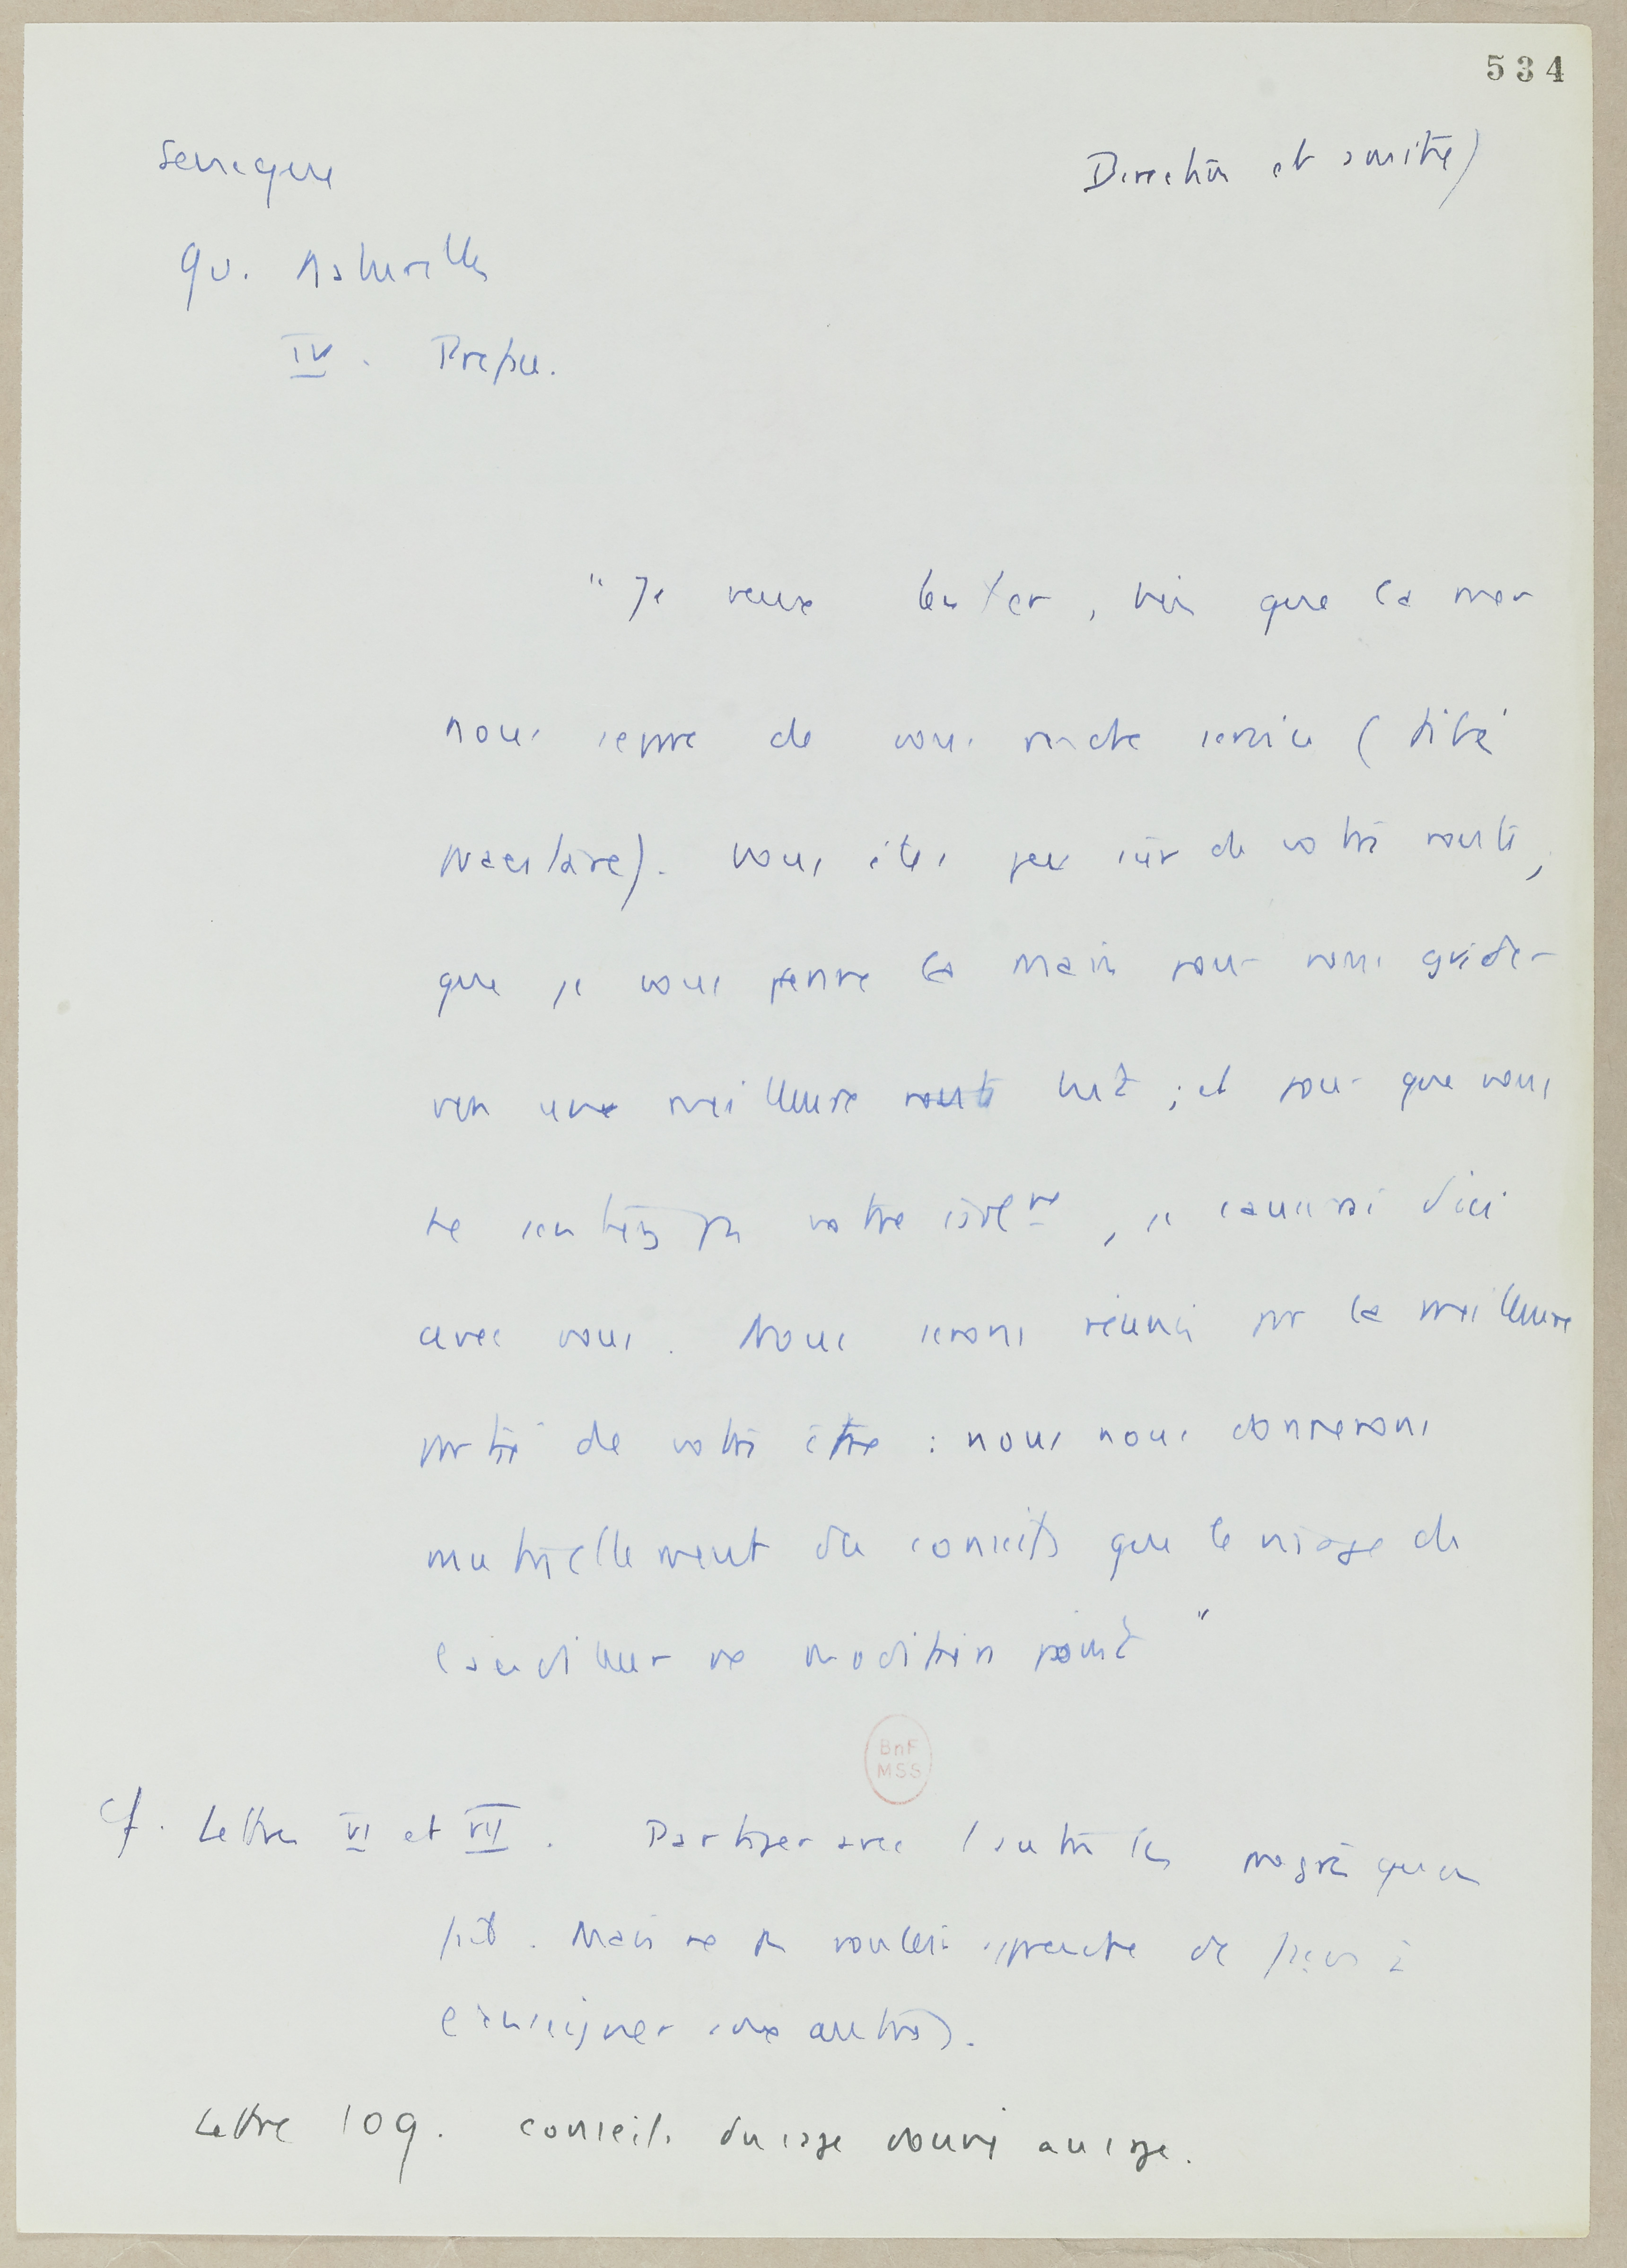 534
Seneque
Direction et amitié)
Qu. Naturelles
IV. Preface.
"Je veux tenter, bien que la mer
nous separe de vous rendre service (
). Vous êtes peu sûr de votre route,
que je vous prenne la main pour vous guider
vers une meilleure route but ; et pour que vous
ne sentiez pas votre isolemt, je causerai d'ici
avec vous. Nous serons réunis par la meilleure
partie de votre être : nous nous donnerons
mutuellement des conseils que le visage de
l'auditeur ne modifiera point"
BnF
MSS
Cf. Lettres VI et VII. Partager avec l'autre les progrès qu'on
fait. Mais ne pas vouloir apprendre de façon à
enseigner aux autres).
Lettre 109. Conseils du sage donné au sage.